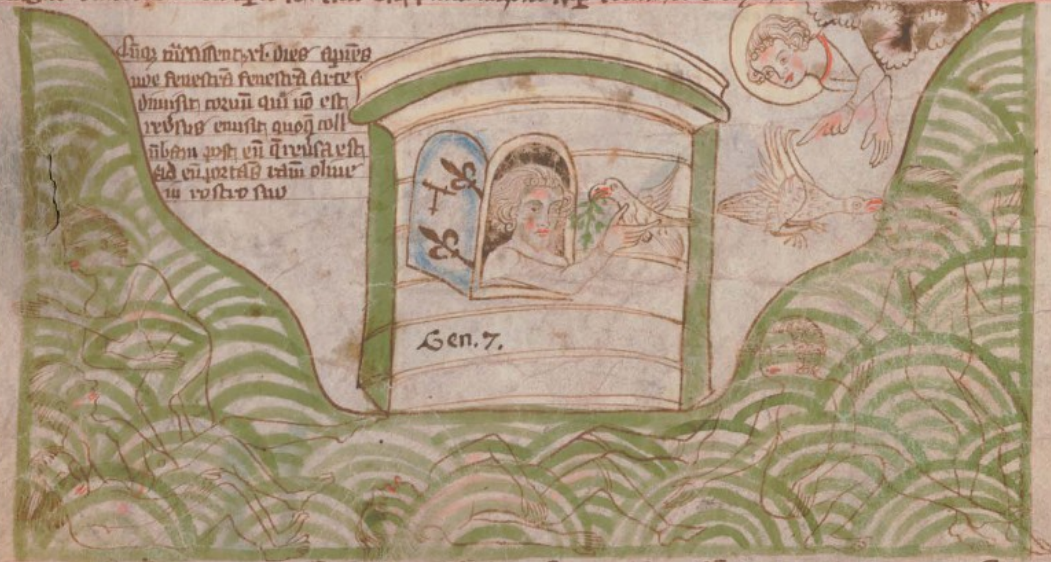 Cūq; trāsissent xl. dies apiēs
noe fenestrā fenestrā arce
dimisit corvū qui nō est
revsus emisit quoq; coll
ūbam post eū q̄ reusa est
ad eū portās ramū olive
in rostro suo
Gen. 7.